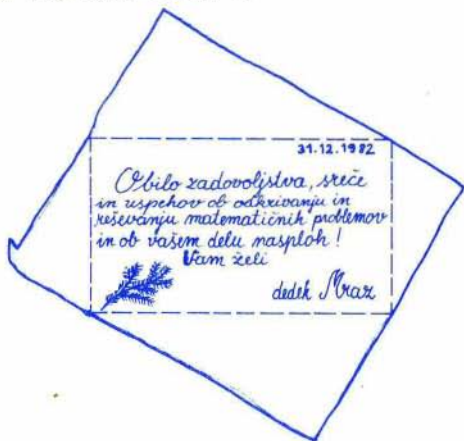 31.12.1982
Obilo zadovoljstva, sreče
in uspehov ob odkrivanju in
reševanju matematičnih problemov
in ob vašem delu nasploh!
Vam želi
dedek Mraz